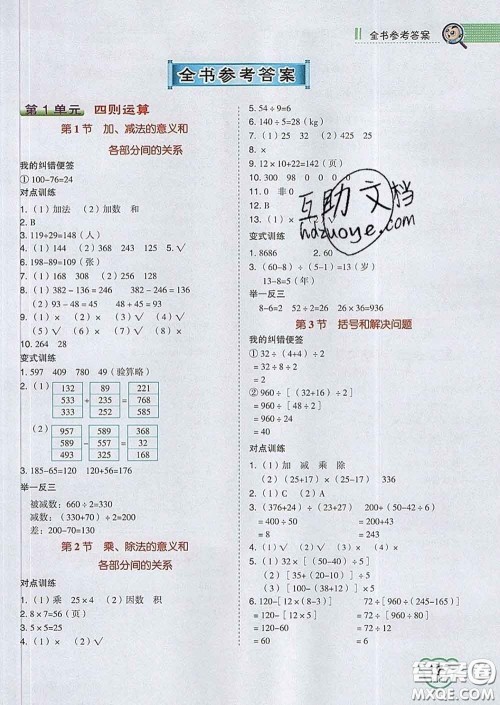 全书参考答案
全书参考答案
第1单元 四则运算
第1节 加、减法的意义和
各部分间的关系
我的纠错便签
①100-76=24
对点训练
1.（1）加法 （2）加数 和
2. B
3. 119+29=148（人）
4.（1）144 （2）368 243 125 5. √
6. 198-89=109（张）
7.（1）168 308 （2）256 128
8.（1）382-146=236 382-236=146
（2）48+45=93 93-48=45
9.（1）× （2）√ （3）√ （4）√
10. 264 287
变式训练
1. 597 409 780 49（验算略）
2.（1）
132 89 221
533 + 235 = 768
333 252 585
（2）
957 368
589 - 557 = 32
332 325 7
3. 185-65=120 120-50=70
举一反三
被减数：660÷2=330
减数：（330+70）÷2=200
差：200-70=130
第2节 乘、除法的意义和
各部分间的关系
对点训练
1.（1）乘 25×4 （2）因数 积
2. 8×7=56（页）
3. 5×5=25
4.（1）× （2）√
5. 54÷9=6
6. 140÷5=28（kg）
7.（1）25 32 （2）425 25
8. ×
9. 12×10+22=142（页）
10. 300 98 0 0 0 0
11. 0 非0
12. B
13.（1）×
变式训练
1. 8686
3.（60-8）÷（5-1）=13（岁）
13-8=5（年）
举一反三
8-6=2 52÷2=26 26×36=936
第3节 括号和解决问题
我的纠错便签
①32÷（4+4）÷2
= 32÷8÷2
= 2
②960÷［（32+16）÷2］
= 960÷［48÷2］
= 960÷24
= 40
对点训练
1.（1）加 减 乘 除
（2）（25+17） ×（25+17） 336
2.（1）C （2）B （3）A
3.（376+24）÷（23+27）（23+27）×（53-47）
= 400÷50 = 50×6
= 8 = 300
4.（1）√ （2）√ （3）× （4）√
互助文档
hdzuoye.com
答案圈
MXQE.COM